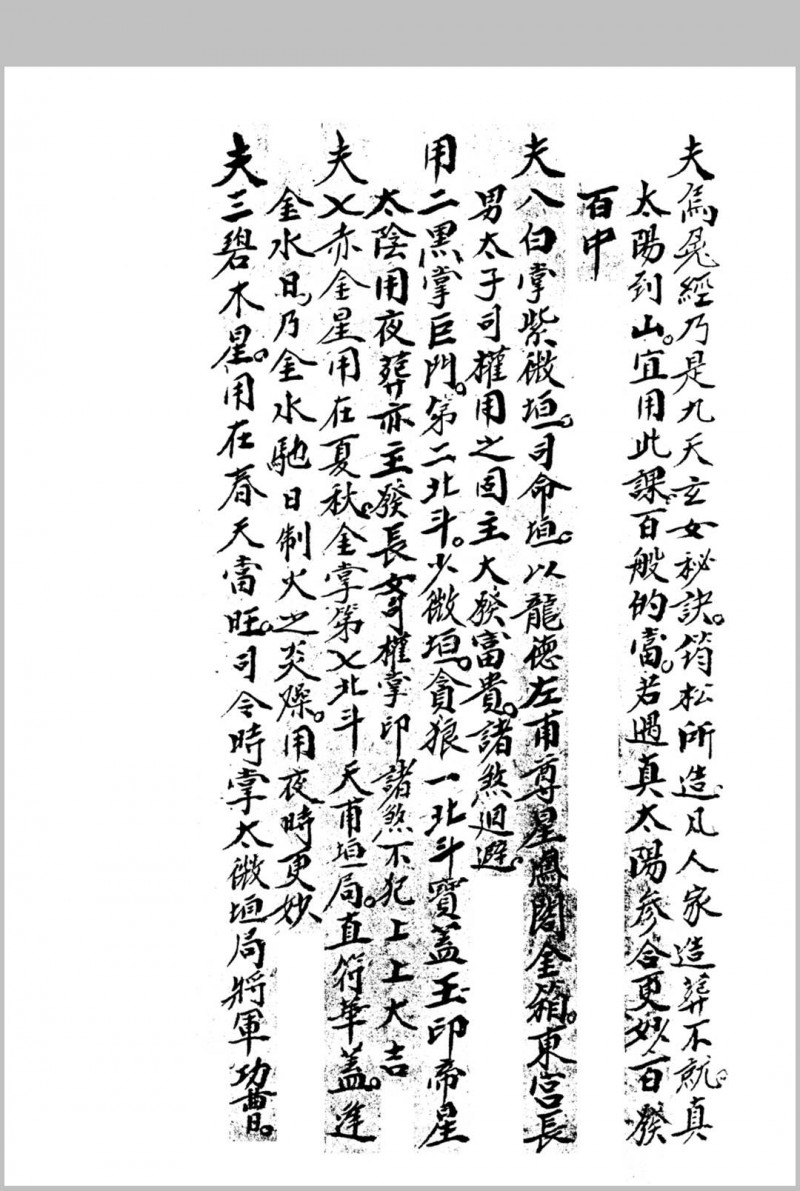 夫烏兎經乃是九天玄女秘訣。筠松所造。凡人家造葬不就。真
太陽到山。宜用此課。百般的當。若遇真太陽參合更妙。百發
百中
夫八白掌紫微垣。司命垣。以龍德左甫尊星鳳閣金箱。東宮長
男太子司權用之固主大發富貴。諸煞廻避。
用二黑掌巨門。第二北斗。少微垣。貪狼一北斗寶蓋玉印帝星
太陰用夜葬亦主發長 司權掌印諸煞不犯上上大吉
夫七赤金星用在夏秋。金掌第七北斗天甫垣局。直符華蓋。逢
金水日。乃金水馳日制火之炎燥。用夜時更妙
夫三碧木星。用在春天當旺。司令時掌太微垣局將軍功曹。